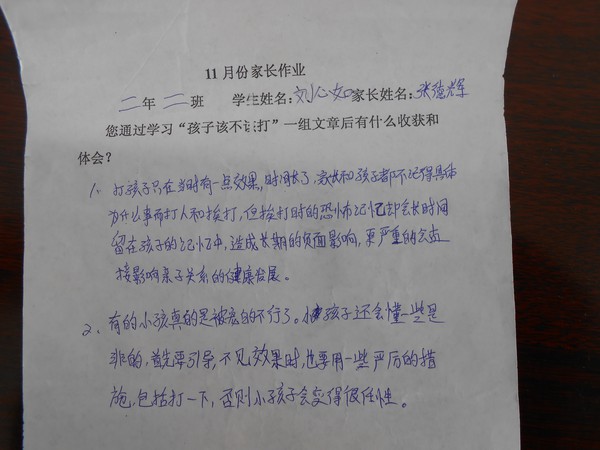 11月份家长作业
二年二班 学生姓名:刘心如家长姓名:张德辉
您通过学习“孩子该不该打”一组文章后有什么收获和
体会?
1、打孩子只在当时有一点效果,时间长了,家长和孩子都不记得具体
为什么事而打人和挨打,但挨打时的恐怖记忆却会长时间
留在孩子的记忆中,造成长期的负面影响,更严重的会直
接影响亲子关系的健康发展。
2、有的小孩真的是被宠的不行了。小孩子还会懂一些是
非的,首先要引导,不见效果时,也要用一些严厉的措
施,包括打一下,否则小孩子会变得很任性。